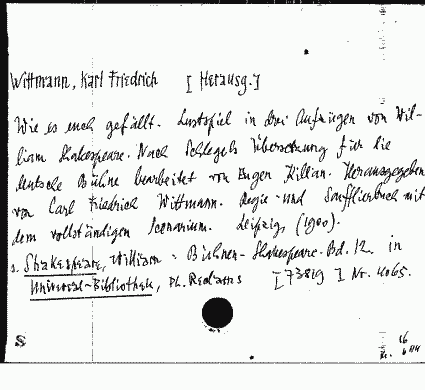 Wittmann, Karl Friedrich [Herausg.]
Wie es euch gefällt. Lustspiel in drei Aufzügen von Wil-
liam Shakespeare. Nach Schlegels Übersetzung für die
deutsche Bühne bearbeitet von Eugen Kilian. Herausgegeben
von Carl Friedrich Wittmann. Regie- und Soufflierbuch mit
dem vollständigen Scenarium. Leipzig, (1900).
s. Shakespeare, William - Bühnen-Shakespeare. Bd. 12. in
Universal-Bibliothek, Ph. Reclams [73819] Nr. 4065.
S
16